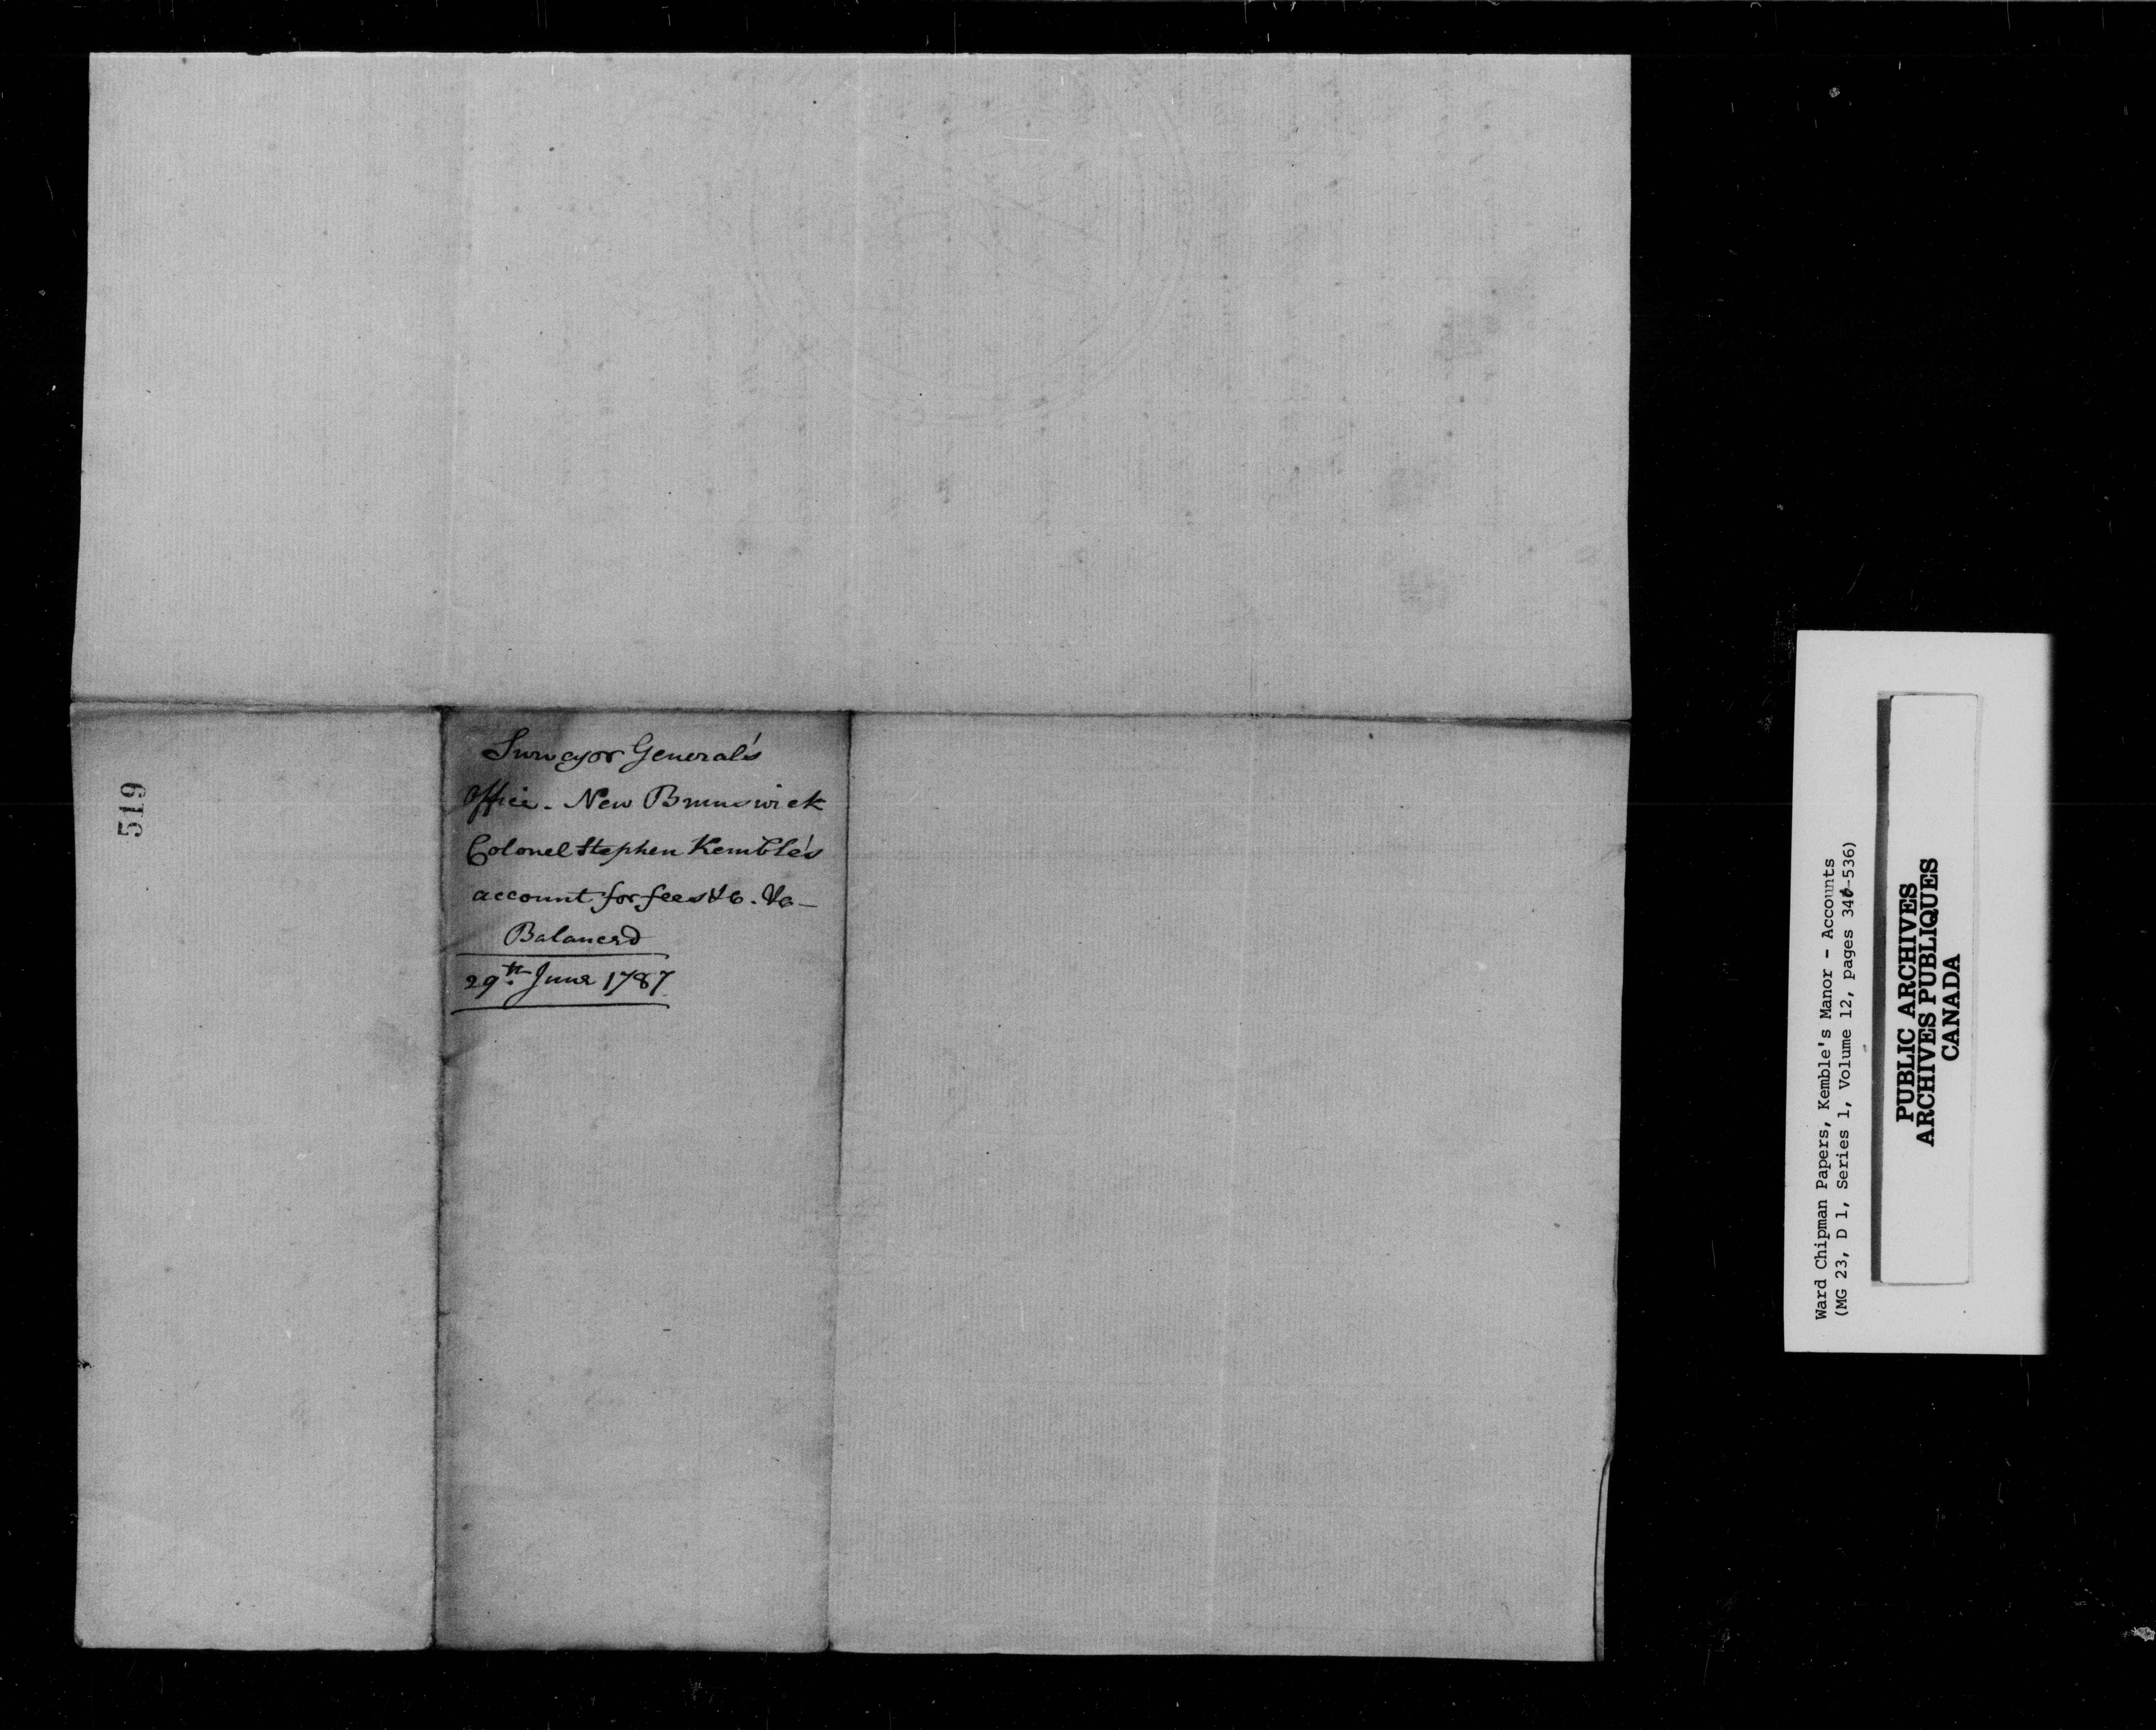 Surveyor General's
Office - New Brunswick
Colonel Stephen Kemble's
account for fees &c. &c -
Balanced
29th. June 1787
519
Ward Chipman Papers, Kemble's Manor - Accounts
(MG 23, D 1, Series 1, Volume 12, pages 340-536)
PUBLIC ARCHIVES
ARCHIVES PUBLIQUES
CANADA